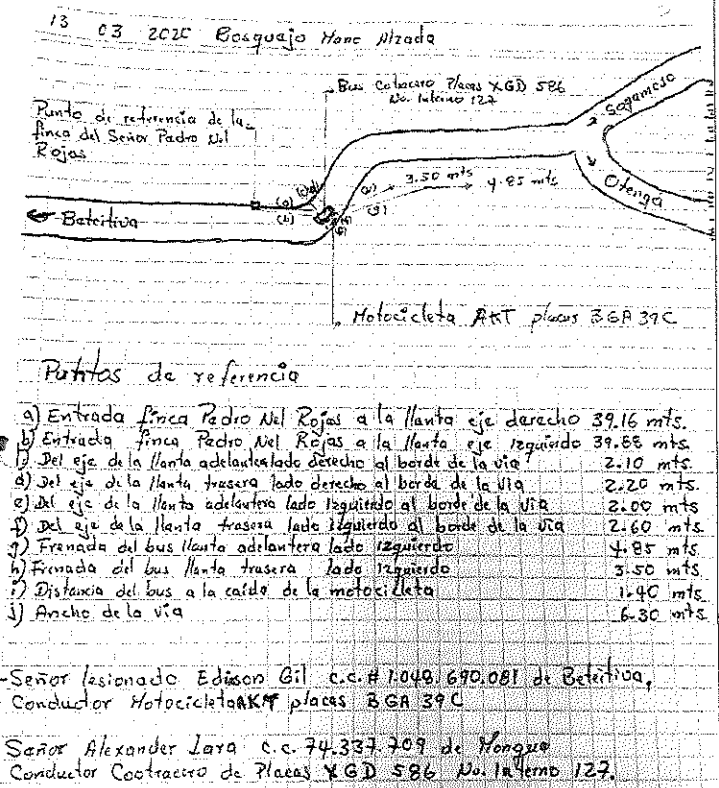 13 03 2020 Bosquejo Mano Alzada
Bus Cotracero Placas XGD 586
No. Interno 127
Sogamoso
Punto de referencia de la
finca del Señor Pedro Nel
Rojas
3.50 mts
4.85 mts
Otenga
(a)
(b)
← Beteitiva
Motocicleta AKT placas BGA 39C
Puntos de referencia
a) Entrada finca Pedro Nel Rojas a la llanta eje derecho 39.16 mts.
b) Entrada finca Pedro Nel Rojas a la llanta eje izquierdo 39.88 mts.
Del eje de la llanta adelantera lado derecho al borde de la vía 2.10 mts
d) Del eje de la llanta trasera lado derecho al borde de la vía 2.20 mts
e) Del eje de la llanta adelantera lado izquierdo al borde de la vía 2.00 mts
f) Del eje de la llanta trasera lado izquierdo al borde de la vía 2.60 mts
g) Frenada del bus llanta adelantera lado izquierdo 4.85 mts
h) Frenada del bus llanta trasera lado izquierdo 3.50 mts
i) Distancia del bus a la caída de la motocicleta 1.40 mts
j) Ancho de la vía 6.30 mts
-Señor lesionado Edison Gil c.c. # 1.048.690.081 de Beteitiva,
Conductor Motocicleta AKT placas BGA 39C
Señor Alexander Lara c.c. 74.337.709 de Mongua
Conductor Cootracero de Placas XGD 586 No. Interno 127.